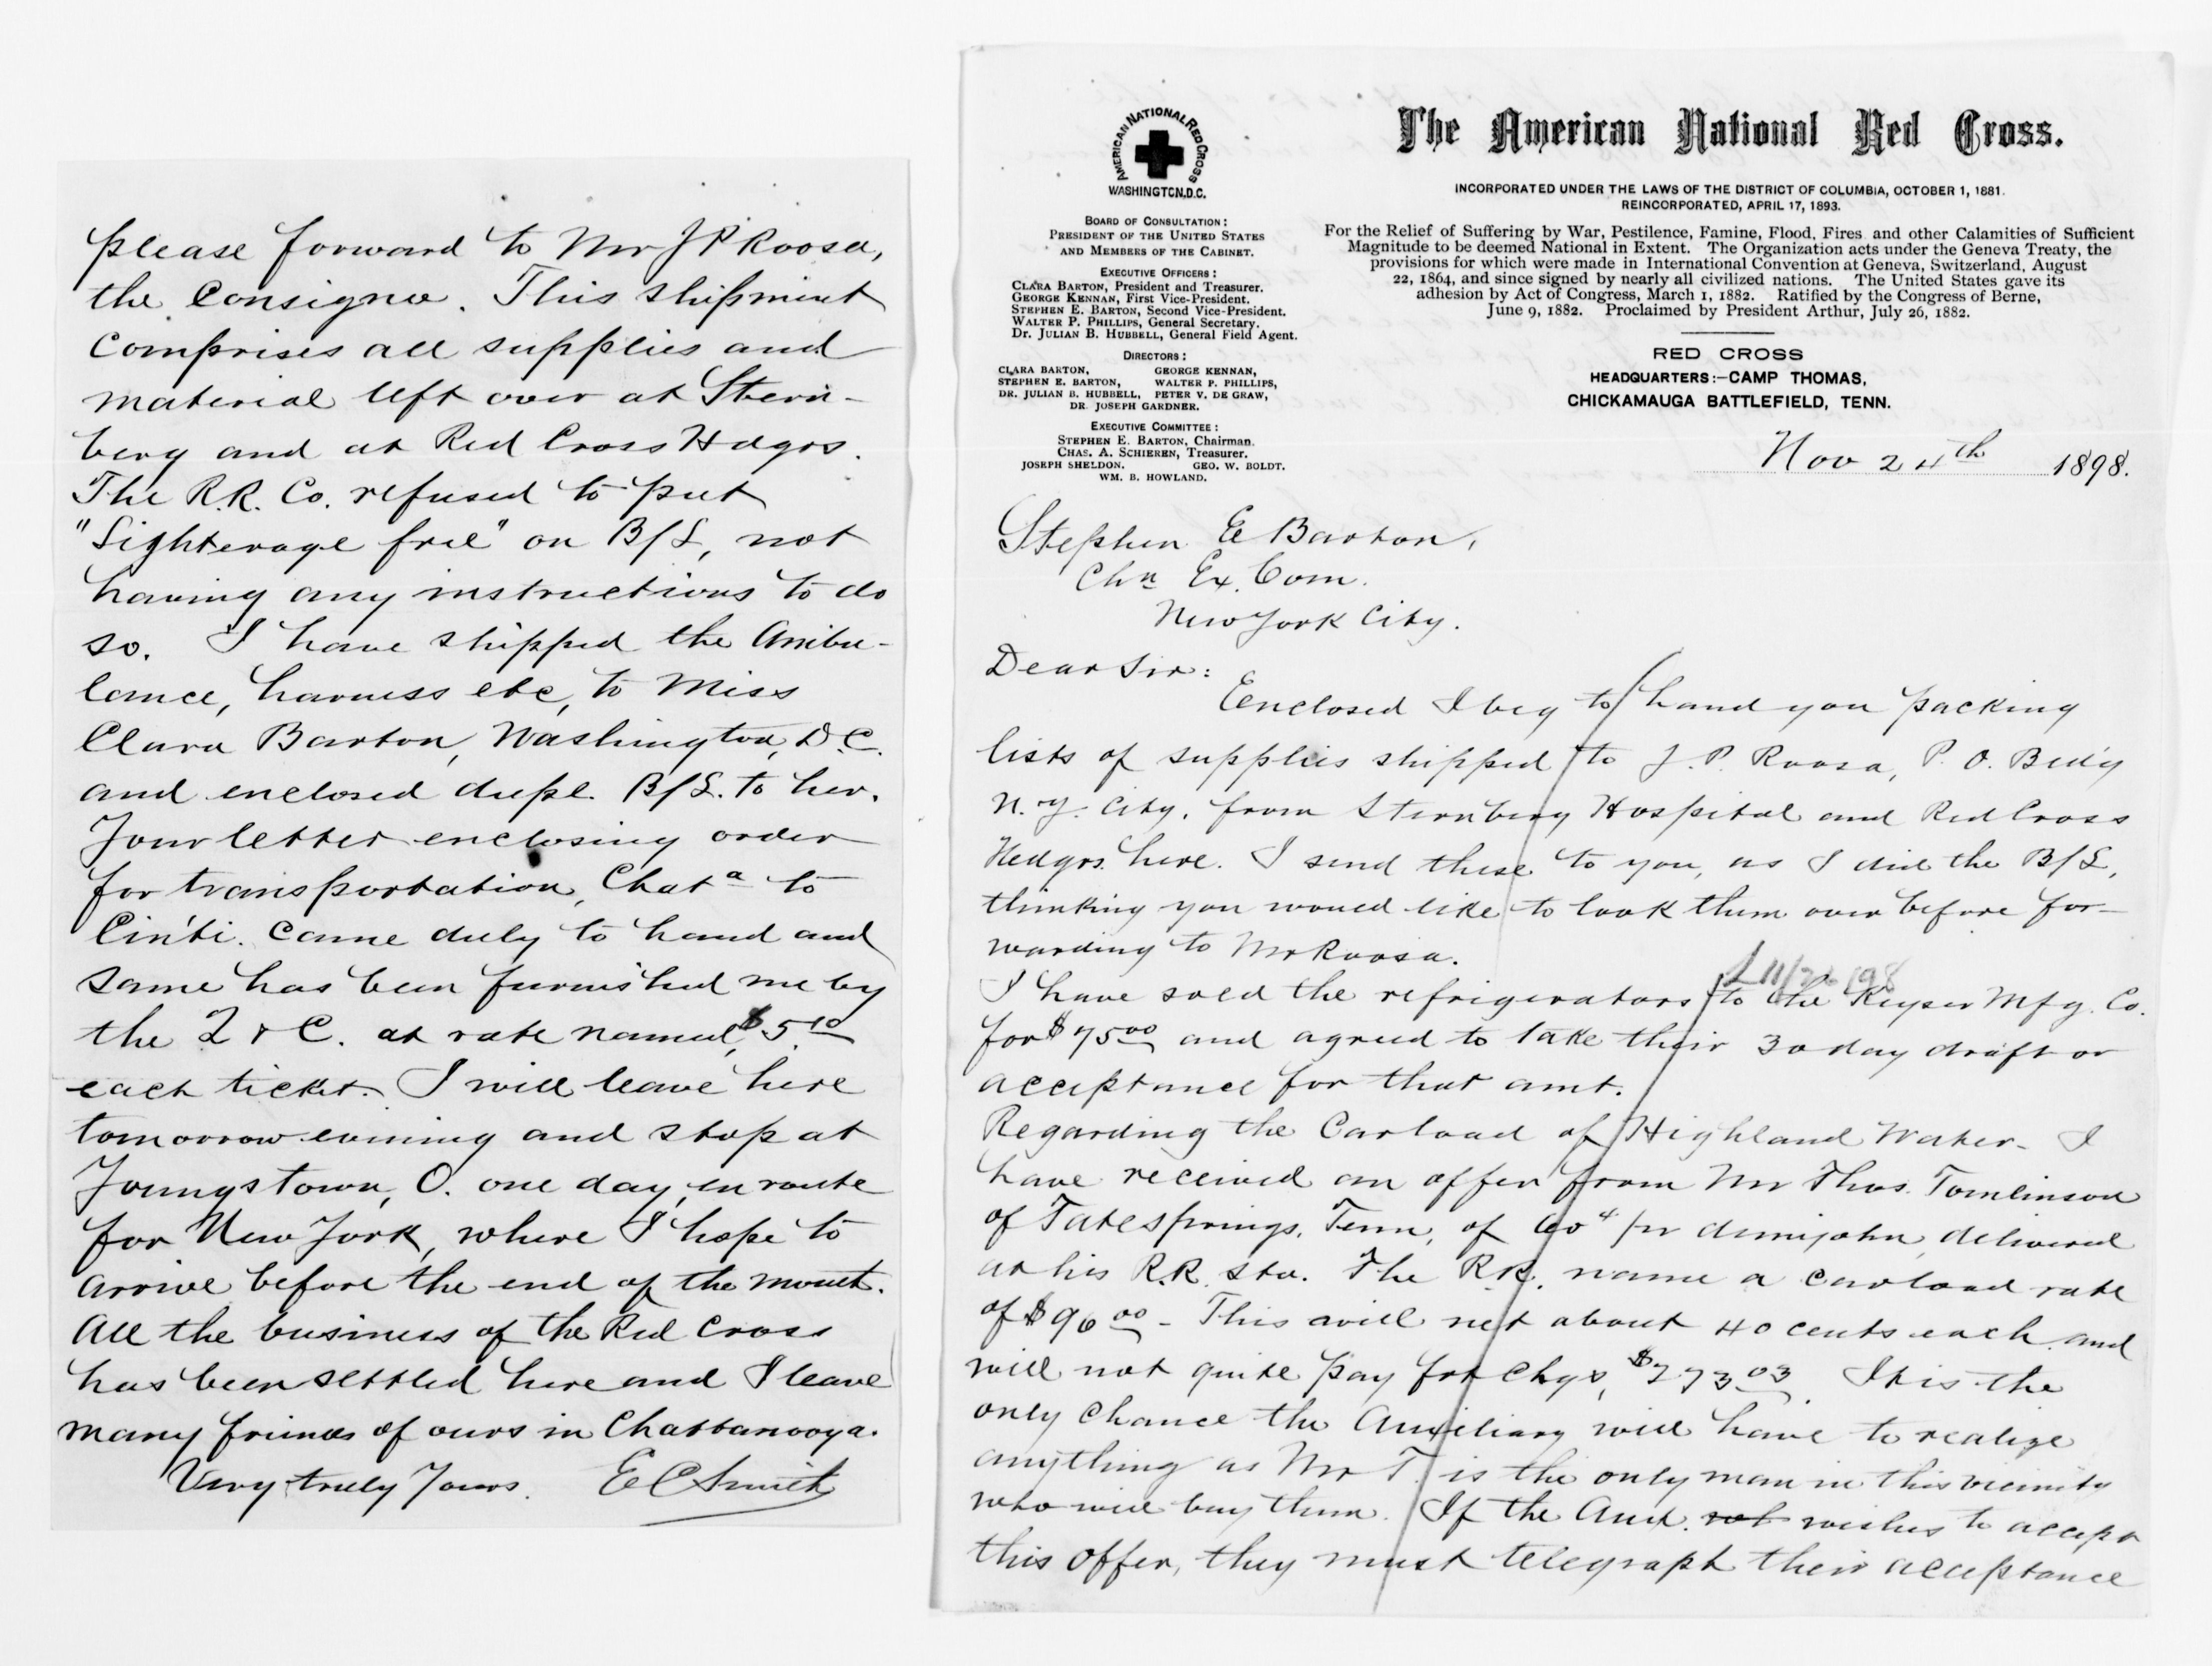 please forward to Mr J P Roosa,
the Consignee. This shipment
comprises all supplies and
material left over at Stern-
berg and at Red Cross Hdqrs.
The R.R. Co. refused to put
"Lighterage free" on B/L, not
having any instructions to do
so. I have shipped the Ambu-
lance, harness etc, to Miss
Clara Barton, Washington, D.C.
and enclosed dupl. B/L. to her.
Your letter enclosing order
for transportation, Chatᵃ to
Cin'ti. came duly to hand and
same has been furnished me by
the Q & C. at rate named, $5.10
each ticket. I will leave here
tomorrow evening and stop at
Youngstown, O. one day, en route
for New York, where I hope to
arrive before the end of the month.
All the business of the Red Cross
has been settled here and I leave
many friends of ours in Chattanooga.
Very truly Yours. E C Smith
AMERICAN NATIONAL RED CROSS
WASHINGTON, D.C.
BOARD OF CONSULTATION:
PRESIDENT OF THE UNITED STATES
AND MEMBERS OF THE CABINET.
EXECUTIVE OFFICERS:
CLARA BARTON, President and Treasurer.
GEORGE KENNAN, First Vice-President.
STEPHEN E. BARTON, Second Vice-President.
WALTER P. PHILLIPS, General Secretary.
DR. JULIAN B. HUBBELL, General Field Agent.
DIRECTORS:
CLARA BARTON, GEORGE KENNAN,
STEPHEN E. BARTON, WALTER P. PHILLIPS,
DR. JULIAN B. HUBBELL, PETER V. DE GRAW,
DR. JOSEPH GARDNER.
EXECUTIVE COMMITTEE:
STEPHEN E. BARTON, Chairman.
CHAS. A. SCHIEREN, Treasurer.
JOSEPH SHELDON. GEO. W. BOLDT.
WM. B. HOWLAND.
The American National Red Cross.
INCORPORATED UNDER THE LAWS OF THE DISTRICT OF COLUMBIA, OCTOBER 1, 1881.
REINCORPORATED, APRIL 17, 1893.
For the Relief of Suffering by War, Pestilence, Famine, Flood, Fires and other Calamities of Sufficient
Magnitude to be deemed National in Extent. The Organization acts under the Geneva Treaty, the
provisions for which were made in International Convention at Geneva, Switzerland, August
22, 1864, and since signed by nearly all civilized nations. The United States gave its
adhesion by Act of Congress, March 1, 1882. Ratified by the Congress of Berne,
June 9, 1882. Proclaimed by President Arthur, July 26, 1882.
RED CROSS
HEADQUARTERS:—CAMP THOMAS,
CHICKAMAUGA BATTLEFIELD, TENN.
Nov 24th 1898.
Stephen E Barton,
Chn Ex. Com.
New York City.
Dear Sir:
Eenclosed I beg to hand you packing
lists of supplies shipped to J. P. Roosa, P. O. Bld'g
N. Y. City, from Sternberg Hospital and Red Cross
Hedqrs. here. I send these to you, as I did the B/L,
thinking you would like to look them over before for-
warding to Mr Roosa.
I have sold the refrigerators to the Keyser Mfg. Co.
for $75.00 and agreed to take their 30 day draft or
acceptance for that amt.
Regarding the Carload of Highland Water - I
have received an offer from Mr Thos. Tomlinson
of Tate Springs, Tenn, of 60¢ pr demijohn, delivered
at his R.R. sta. The R.R. name a carload rate
of $96.00 - This will net about 40 cents each and
will not quite pay frt chgs, $273.03. It is the
only chance the Auxiliary will have to realize
anything as Mr T. is the only man in this vicinity
who will buy them. If the Aux. not wishes to accept
this offer, they must telegraph their acceptance